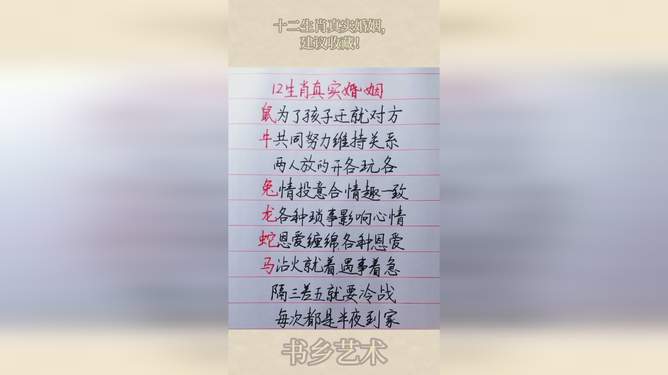 十二生肖真实婚姻,
建议收藏!
12生肖真实婚姻
鼠为了孩子迁就对方
牛共同努力维持关系
两人放的开各玩各
兔情投意合情趣一致
龙各种琐事影响心情
蛇恩爱缠绵各种恩爱
马沾火就着遇事着急
隔三差五就要冷战
每次都是半夜到家
书乡艺术